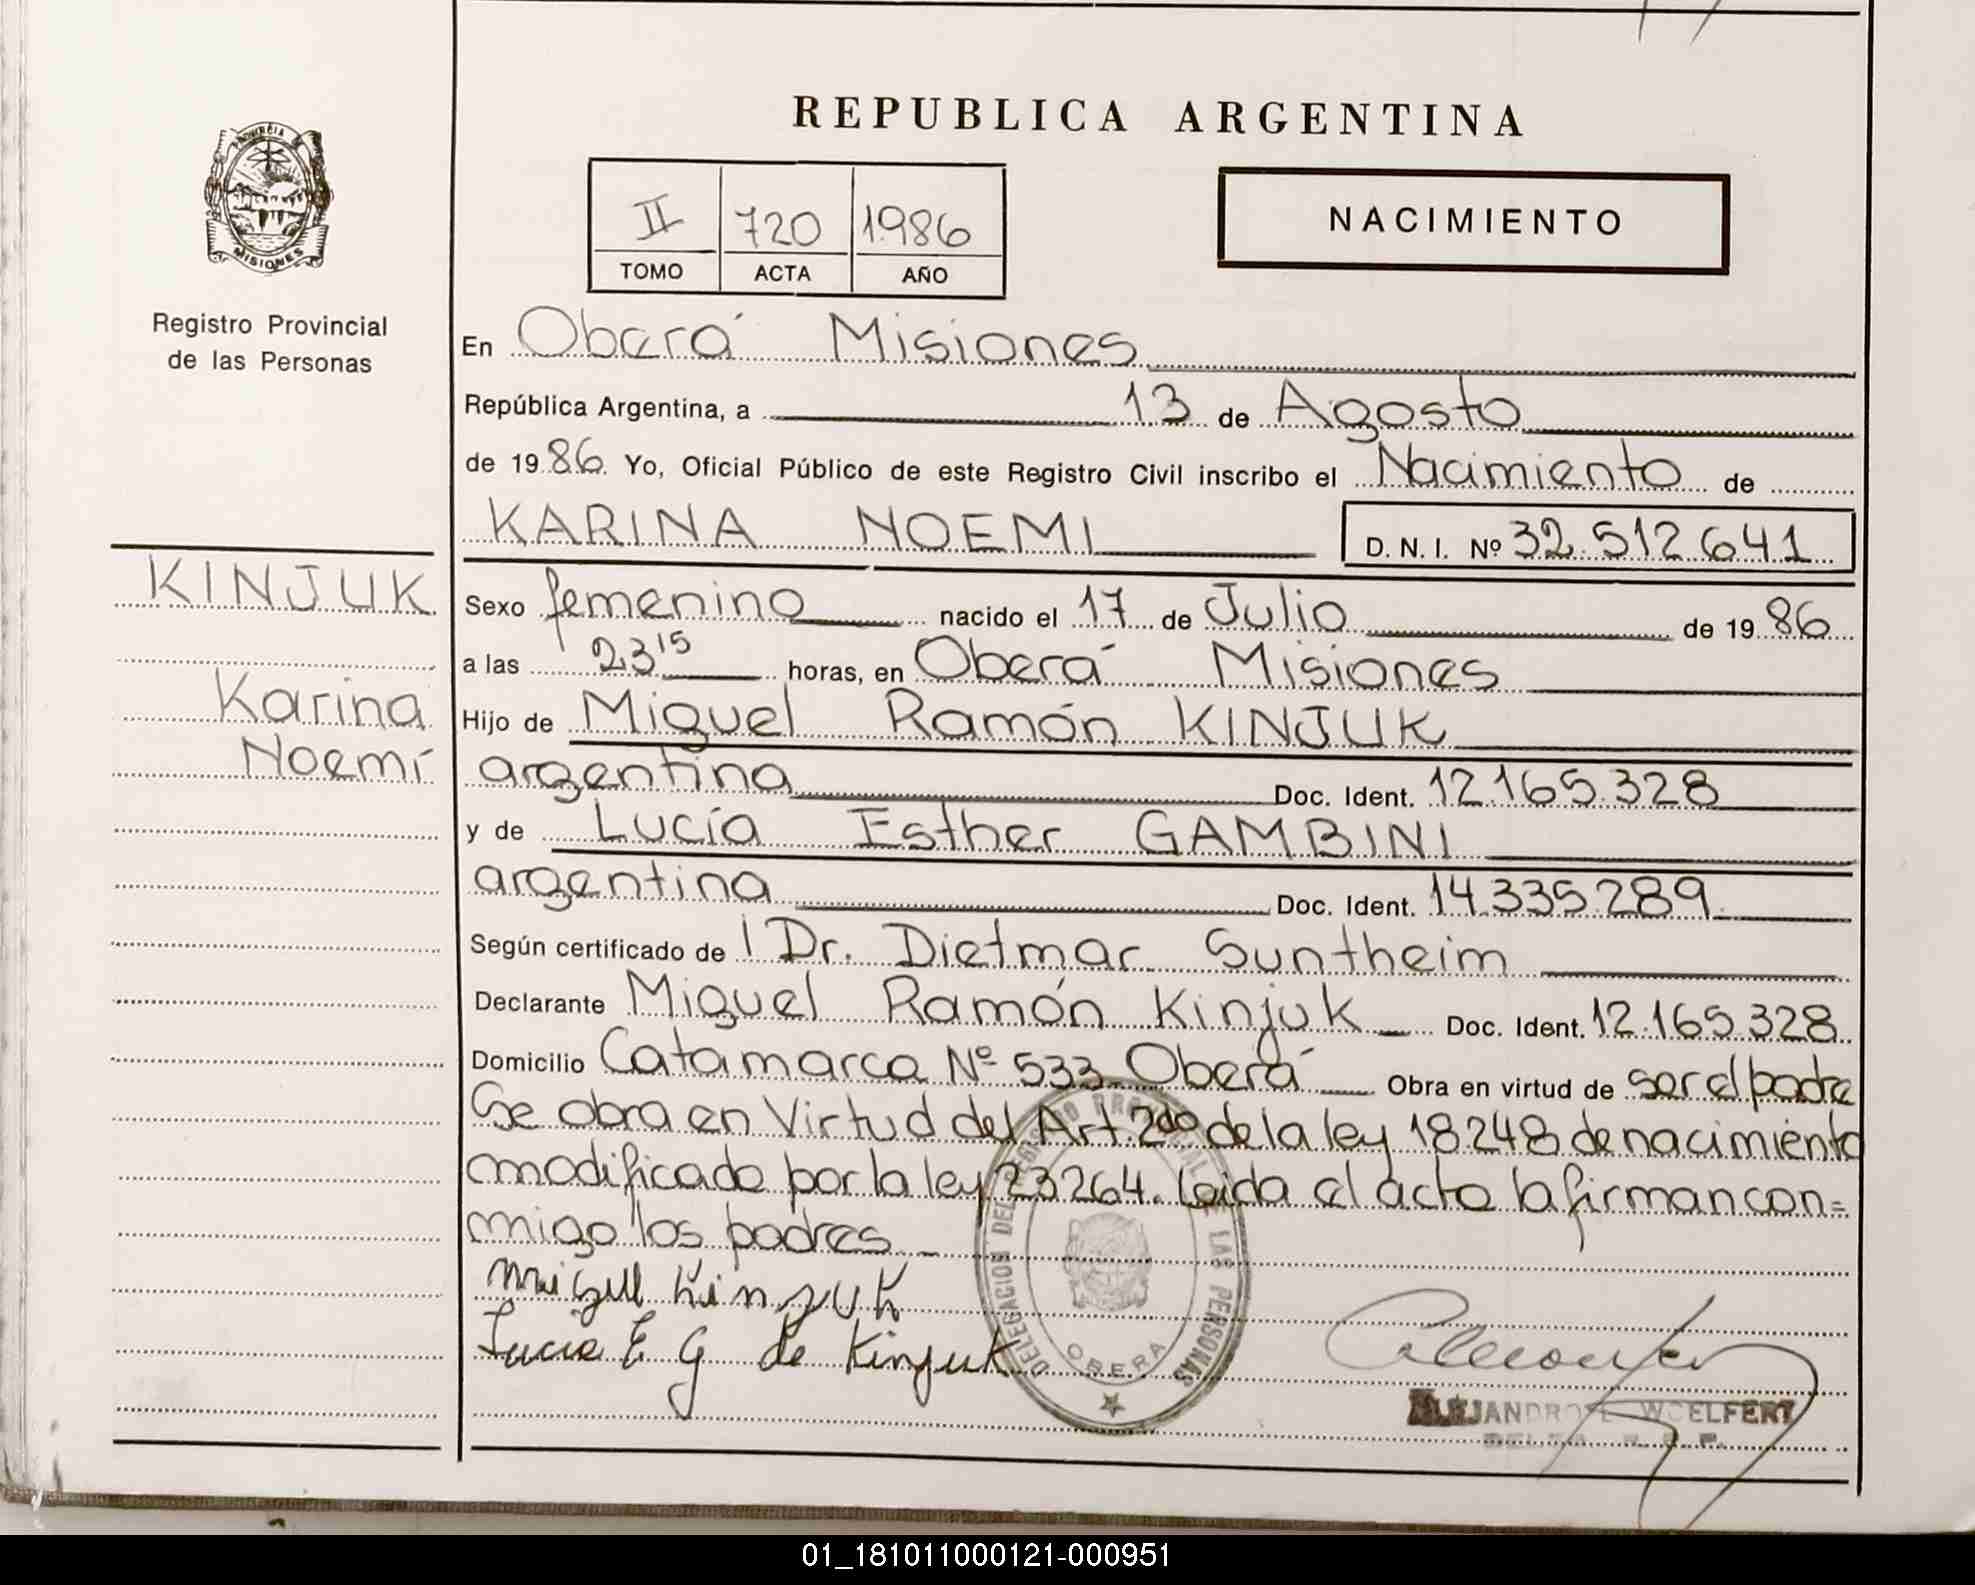 REPUBLICA ARGENTINA
PROVINCIA
MISIONES
II 720 1986
TOMO ACTA AÑO
NACIMIENTO
Registro Provincial
de las Personas
KINJUK
Karina
Noemí
En Oberá Misiones
República Argentina, a 13 de Agosto
de 1986. Yo, Oficial Público de este Registro Civil inscribo el Nacimiento de
KARINA NOEMI D. N. I. Nº 32.512.641
Sexo femenino nacido el 17 de Julio de 1986
a las 23 15 horas, en Oberá Misiones
Hijo de Miguel Ramón KINJUK
argentina Doc. Ident. 12.165.328
y de Lucía Esther GAMBINI
argentina Doc. Ident. 14.335.289
Según certificado de l Dr. Dietmar Suntheim
Declarante Miguel Ramón Kinjuk Doc. Ident. 12.165.328
Domicilio Catamarca Nº 533 Oberá Obra en virtud de ser el padre
Se obra en Virtud del Art. 2do de la ley 18248 de nacimiento
modificado por la ley 23264. Leida el acta la firman con=
migo los padres
Miguel Kinjuk
Lucia E G de Kinjuk
DELEGACION DEL REGISTRO PROVINCIAL DE LAS PERSONAS
OBERA
ALEJANDRO WOELFERT
01_181011000121-000951